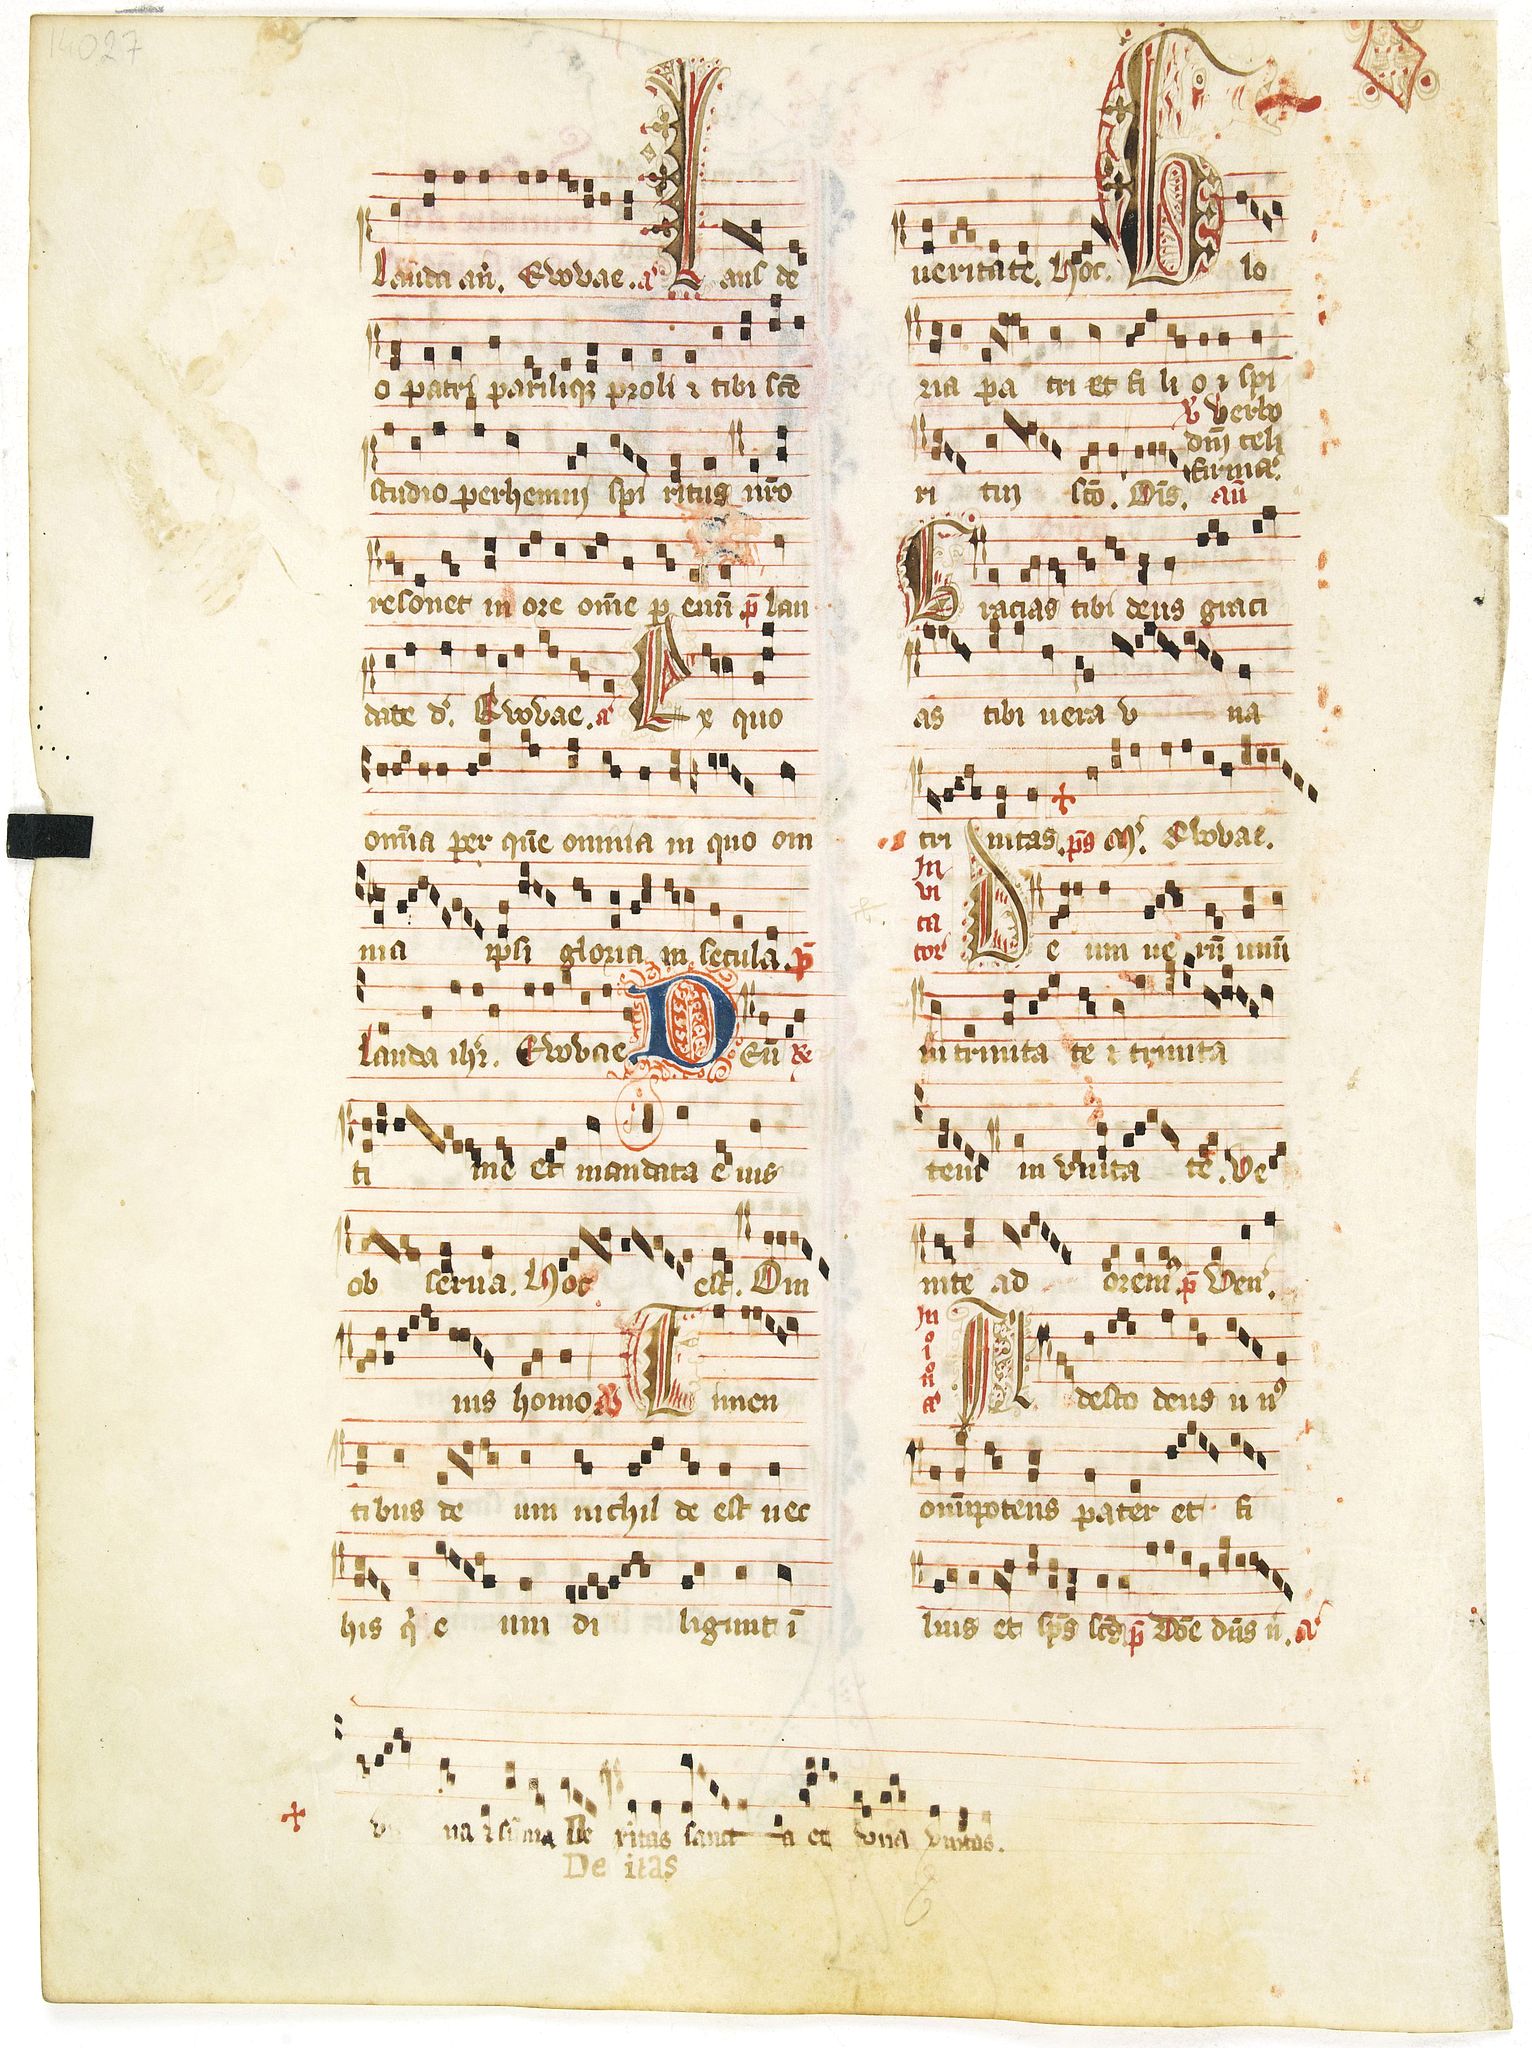 14027
Lauda aīa. Euouae. a Laus de
o patri pariliqз proli ⁊ tibi sc̄e
studio perhenni spi ritus nr̄o
resonet in ore om̄e p euū p̄ lau
date d. Euouae. a Ex quo
om̄ia per quē omnia in quo om
nia ipsi gloria in secula. p̄
Lauda ihr̄. Euouae. Deū ꝶ
ti me et mandata e ius
ob serua. Hoc est. Om
nis homo. ℣ Timen
tibus de um nichil de est nec
his q̇ e um di ligunt ī
ueritate. Hoc. Glo
ria pa tri et fi li o ⁊ spi
℣ Verbo
dn̄i celi
firmat.
ri tui sc̄o. Om̄s. an̄
Gracias tibi deus graci
as tibi uera v na
tri nitas. p̄s M. Euouae.
In
vi
ta
tor
De um ue rū unū
in trinita te ⁊ trinita
tem in vnita te. Ve
nite ad orem. p̄ Ven.
In
Adesto deus u nꝰ
om̄ipotens pater et fi
lius et sp̄s sc̄s p̄ Dn̄e dn̄s n. a
v na ⁊ sum̄a De ritas sanct a et vna vnitas.
De itas